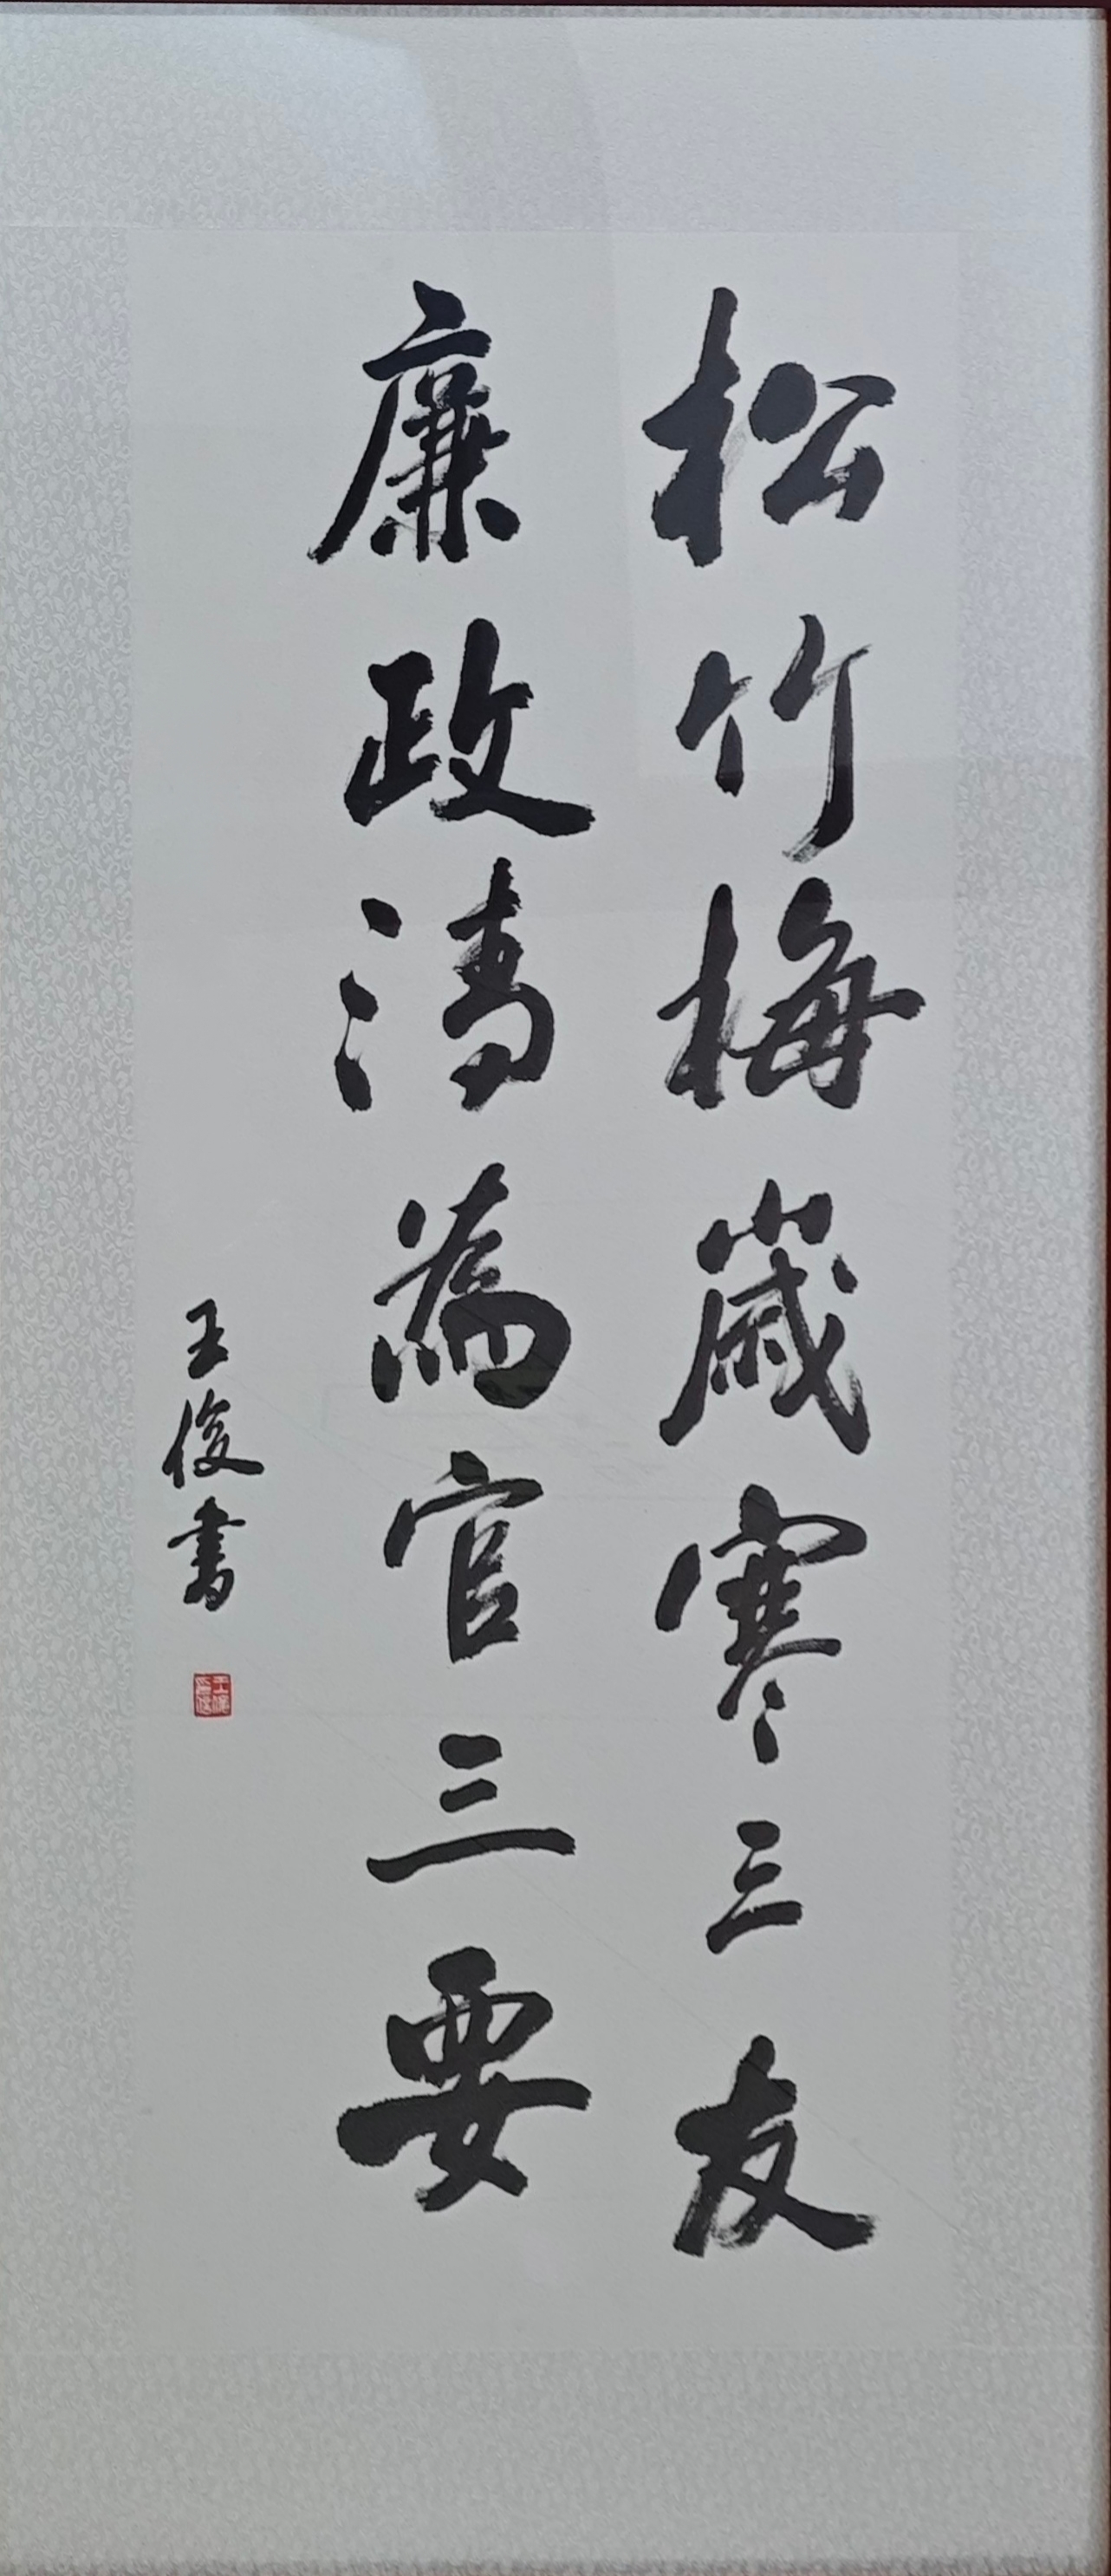 松竹梅歲寒三友
廉政清為官三要
王俊書